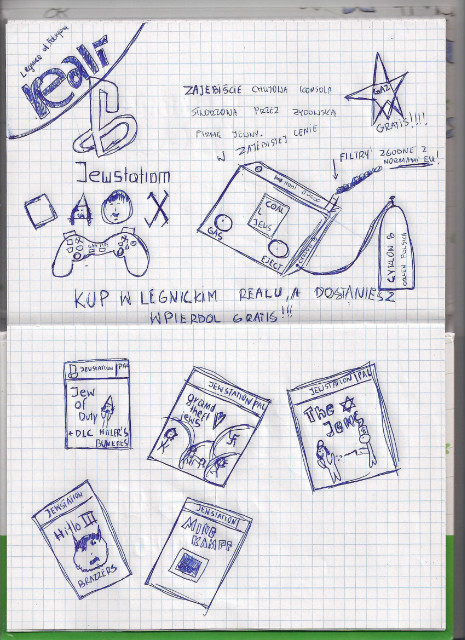 Legnica ul. Fabryczna
Real
GAZ
GRATIS!!!!
ZAJEBIŚCIE CHUJOWA KONSOLA
STWORZONA PRZEZ ŻYDOWSKĄ
FIRMĘ
W ZAJEBISTEJ CENIE
FILTRY ZGODNE Z
NORMAMI EU!
Jewstation
COAL
JEWS
GAS
EJECT
CYKLON B
KUP W LEGNICKIM REALU, A DOSTANIESZ
WPIERDOL GRATIS!!!
JEWSTATION PAL
Jew
of
Duty
+DLC HITLER'S
BUNKERS
JEWSTATION PAL
Grand
theft
jews
JEWSTATION PAL
The
JEWS
JEWSTATION
Hitlo III
BRAZZERS
JEWSTATION
MINE
KAMPF